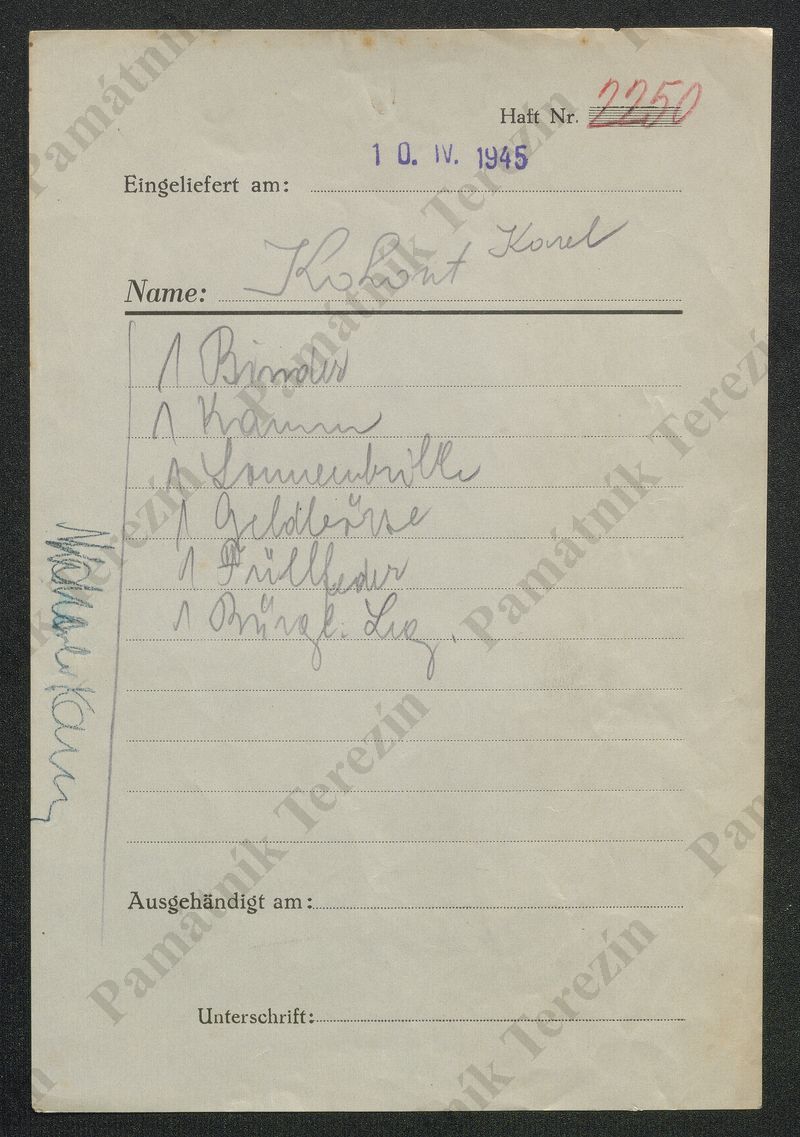 Haft Nr. 2250
10. IV. 1945
Eingeliefert am:
Name: Kohout Karel
1 Binder
1 Kamm
1 Sonnenbrille
1 Geldbörse
1 Füllfeder
1 Bürgl. Leg.
Ausgehändigt am:
Unterschrift:
Památník Terezín